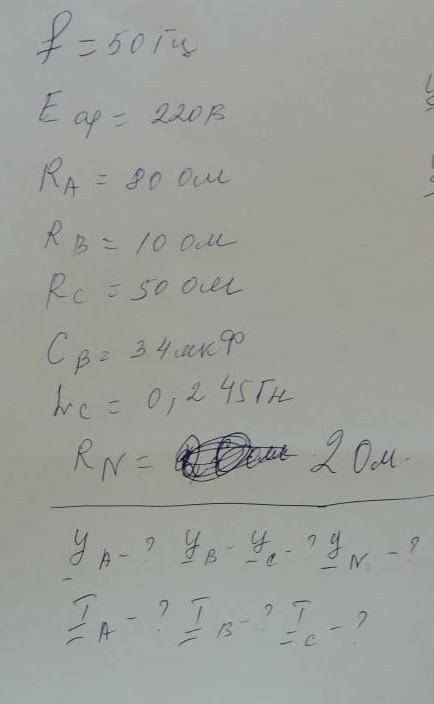 f = 50 Гц
E ср = 220 В
R A = 80 Ом
R B = 10 Ом
R C = 50 Ом
C B = 34 мкФ
L C = 0,245 Гн
R N = 2 Ом.
У A - ? У B - У C - ? У N - ?
I A - ? I B - ? I C - ?